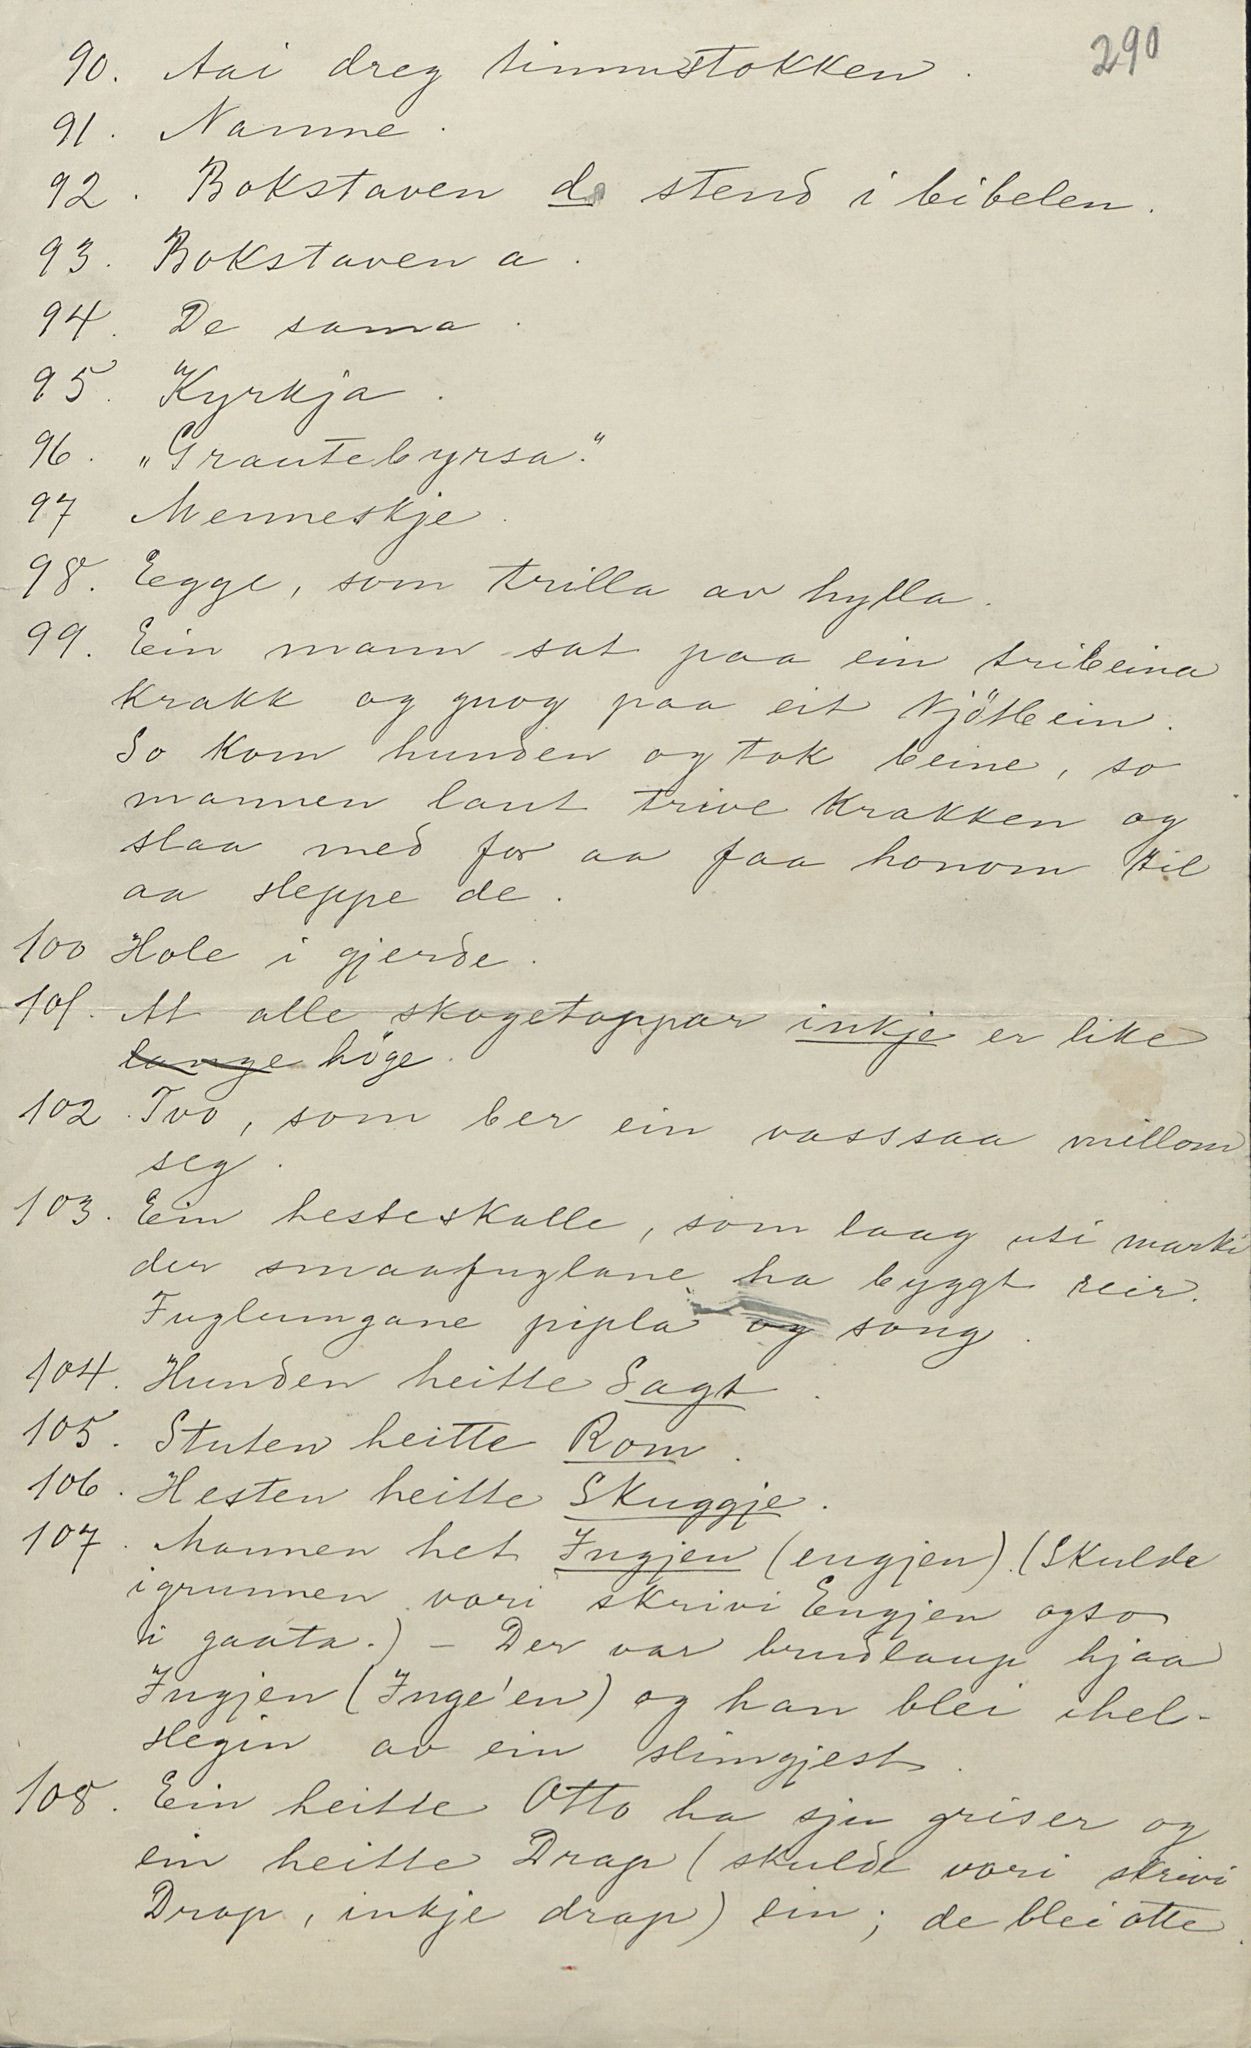 290
90. Aai dreg timmstokken.
91. Namne.
92. Bokstaven d stend i bibelen.
93. Bokstaven a.
94. De sama.
95. Kyrkja.
96. „Grautebyrsa."
97 Menneskje.
98. Egge, som trilla av hylla.
99. Ein mann sat paa ein tribeina
krakk og gnog paa eit kjötbein.
So kom hunden og tok beine, so
mannen laut trive krakken og
slaa med for aa faa honom til
aa sleppe de.
100 Hole i gjerde.
101. At alle skogetoppar inkje er like
lange höge.
102. Tvo, som ber ein vasssaa millom
seg.
103. Ein hesteskalle, som laag uti marki
der smaafuglane ha byggt reir.
Fuglungane pipla og song.
104. Hunden heitte Sagt.
105. Stuten heitte Rom.
106. Hesten heitte Skuggje.
107. Mannen het Ingjen (engjen). (Skulde
igrunnen vori skrivi Engjen ogso
i gaata.) – Der var brudlaup hjaa
Ingjen (Inge'en) og han blei ihel-
slegin av ein slimgjest.
108. Ein heitte Otto ha sju griser og
ein heitte Drap (skulde vori skrivi
Drap, inkje drap) ein; de blei otte.